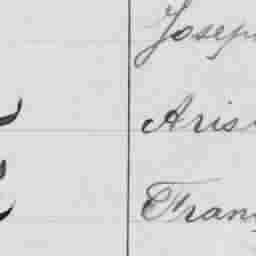 Josep
Aris
Fran